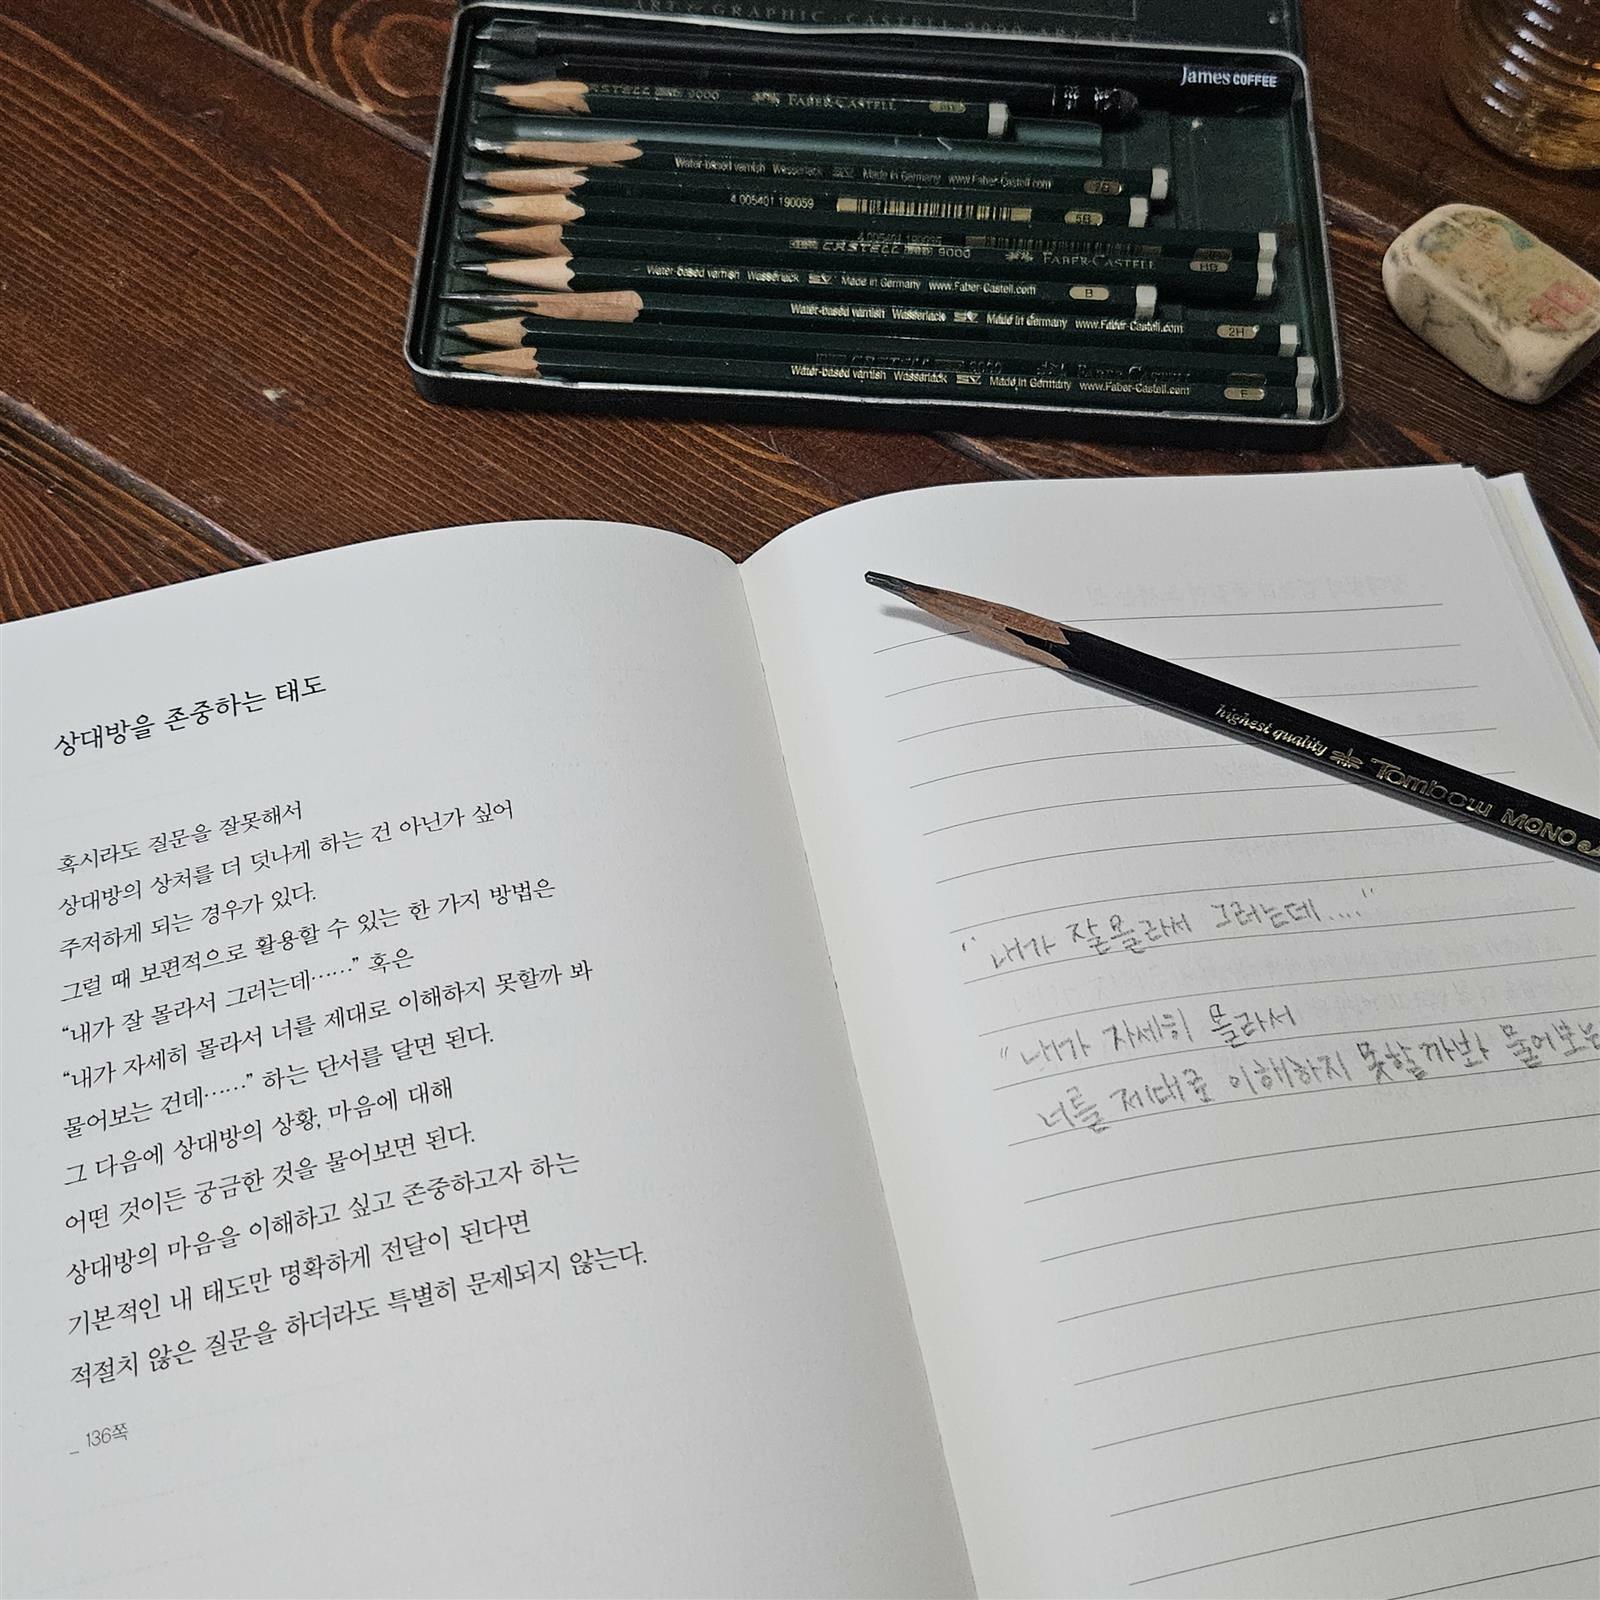 ART & GRAPHIC · CASTELL 9000 ART SET
James COFFEE
CASTELL 9000 FABER-CASTELL
Water-based varnish Wasserlack SV Made in Germany www.Faber-Castell.com
4 005401 190059 5B
CASTELL 9000 FABER-CASTELL HB
Water-based varnish Wasserlack SV Made in Germany www.Faber-Castell.com B
Water-based varnish Wasserlack SV Made in Germany www.Faber-Castell.com 2H
Water-based varnish Wasserlack SV Made in Germany www.Faber-Castell.com F
상대방을 존중하는 태도
혹시라도 질문을 잘못해서
상대방의 상처를 더 덧나게 하는 건 아닌가 싶어
주저하게 되는 경우가 있다.
그럴 때 보편적으로 활용할 수 있는 한 가지 방법은
“내가 잘 몰라서 그러는데……” 혹은
“내가 자세히 몰라서 너를 제대로 이해하지 못할까 봐
물어보는 건데……” 하는 단서를 달면 된다.
그 다음에 상대방의 상황, 마음에 대해
어떤 것이든 궁금한 것을 물어보면 된다.
상대방의 마음을 이해하고 싶고 존중하고자 하는
기본적인 내 태도만 명확하게 전달이 된다면
적절치 않은 질문을 하더라도 특별히 문제되지 않는다.
_ 136쪽
highest quality Tombow MONO
“내가 잘 몰라서 그러는데....”
“내가 자세히 몰라서
너를 제대로 이해하지 못할까봐 물어보는